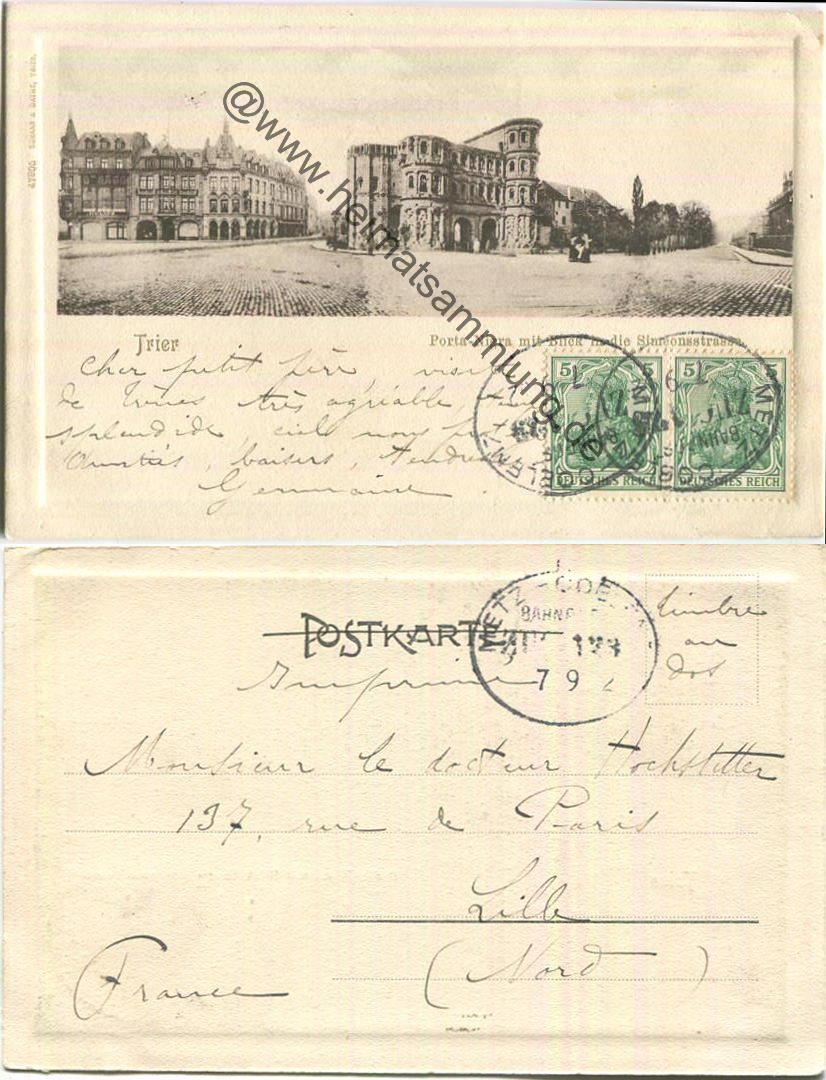 @www.heimatsammlung.de
Trier
Porta Nigra mit Blick in die Simeonsstrasse
cher petit père visite
de Trèves très agréable,
splendide, ciel
Amitiés, baisers, tendresses
Germaine
5 5
5 5
DEUTSCHES REICH
DEUTSCHES REICH
METZ
BAHN
POSTKARTE
METZ - COELN
BAHN
7 9 2
Imprimé
timbre
au
dos
Monsieur le docteur Hochstetter
137, rue de Paris
Lille
(Nord)
France